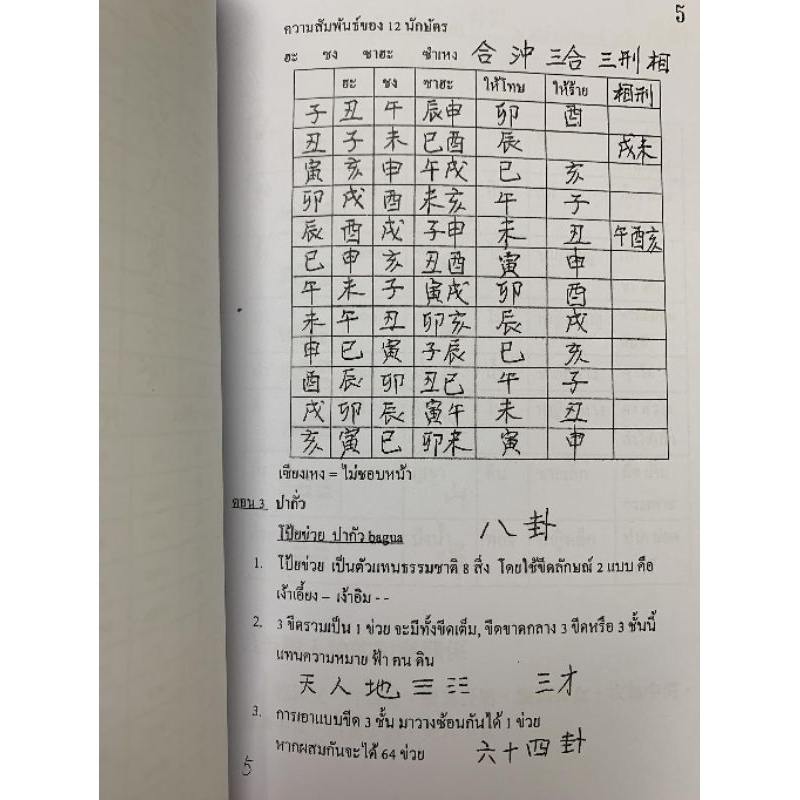 5
ความสัมพันธ์ของ 12 นักษัตร
ฮะ ชง ซาฮะ ซำเหง 合 沖 三合 三刑 相
ฮะ ชง ซาฮะ ให้โทษ ให้ร้าย 相刑
子 丑 午 辰申 卯 酉
丑 子 未 巳酉 辰 戌未
寅 亥 申 午戌 巳 亥
卯 戌 酉 未亥 午 子
辰 酉 戌 子申 未 丑 午酉亥
巳 申 亥 丑酉 寅 申
午 未 子 寅戌 卯 酉
未 午 丑 卯亥 辰 戌
申 巳 寅 子辰 巳 亥
酉 辰 卯 丑巳 午 子
戌 卯 辰 寅午 未 丑
亥 寅 巳 卯未 寅 申
เซียงเหง = ไม่ชอบหน้า
ตอน 3 ปากั่ว
โป้ยข่วย ปากัว bagua 八卦
1. โป้ยข่วย เป็นตัวแทนธรรมชาติ 8 สิ่ง โดยใช้ขีดลักษณ์ 2 แบบ คือ
เง้าเอี้ยง – เง้าอิม - -
2. 3 ขีดรวมเป็น 1 ข่วย จะมีทั้งขีดเต็ม, ขีดขาดกลาง 3 ขีดหรือ 3 ชั้นนี้
แทนความหมาย ฟ้า คน ดิน
天 人 地 ☰ ☷ 三才
3. การเอาแบบขีด 3 ชั้น มาวางซ้อนกันได้ 1 ข่วย
หากผสมกันจะได้ 64 ข่วย 六十四卦
5